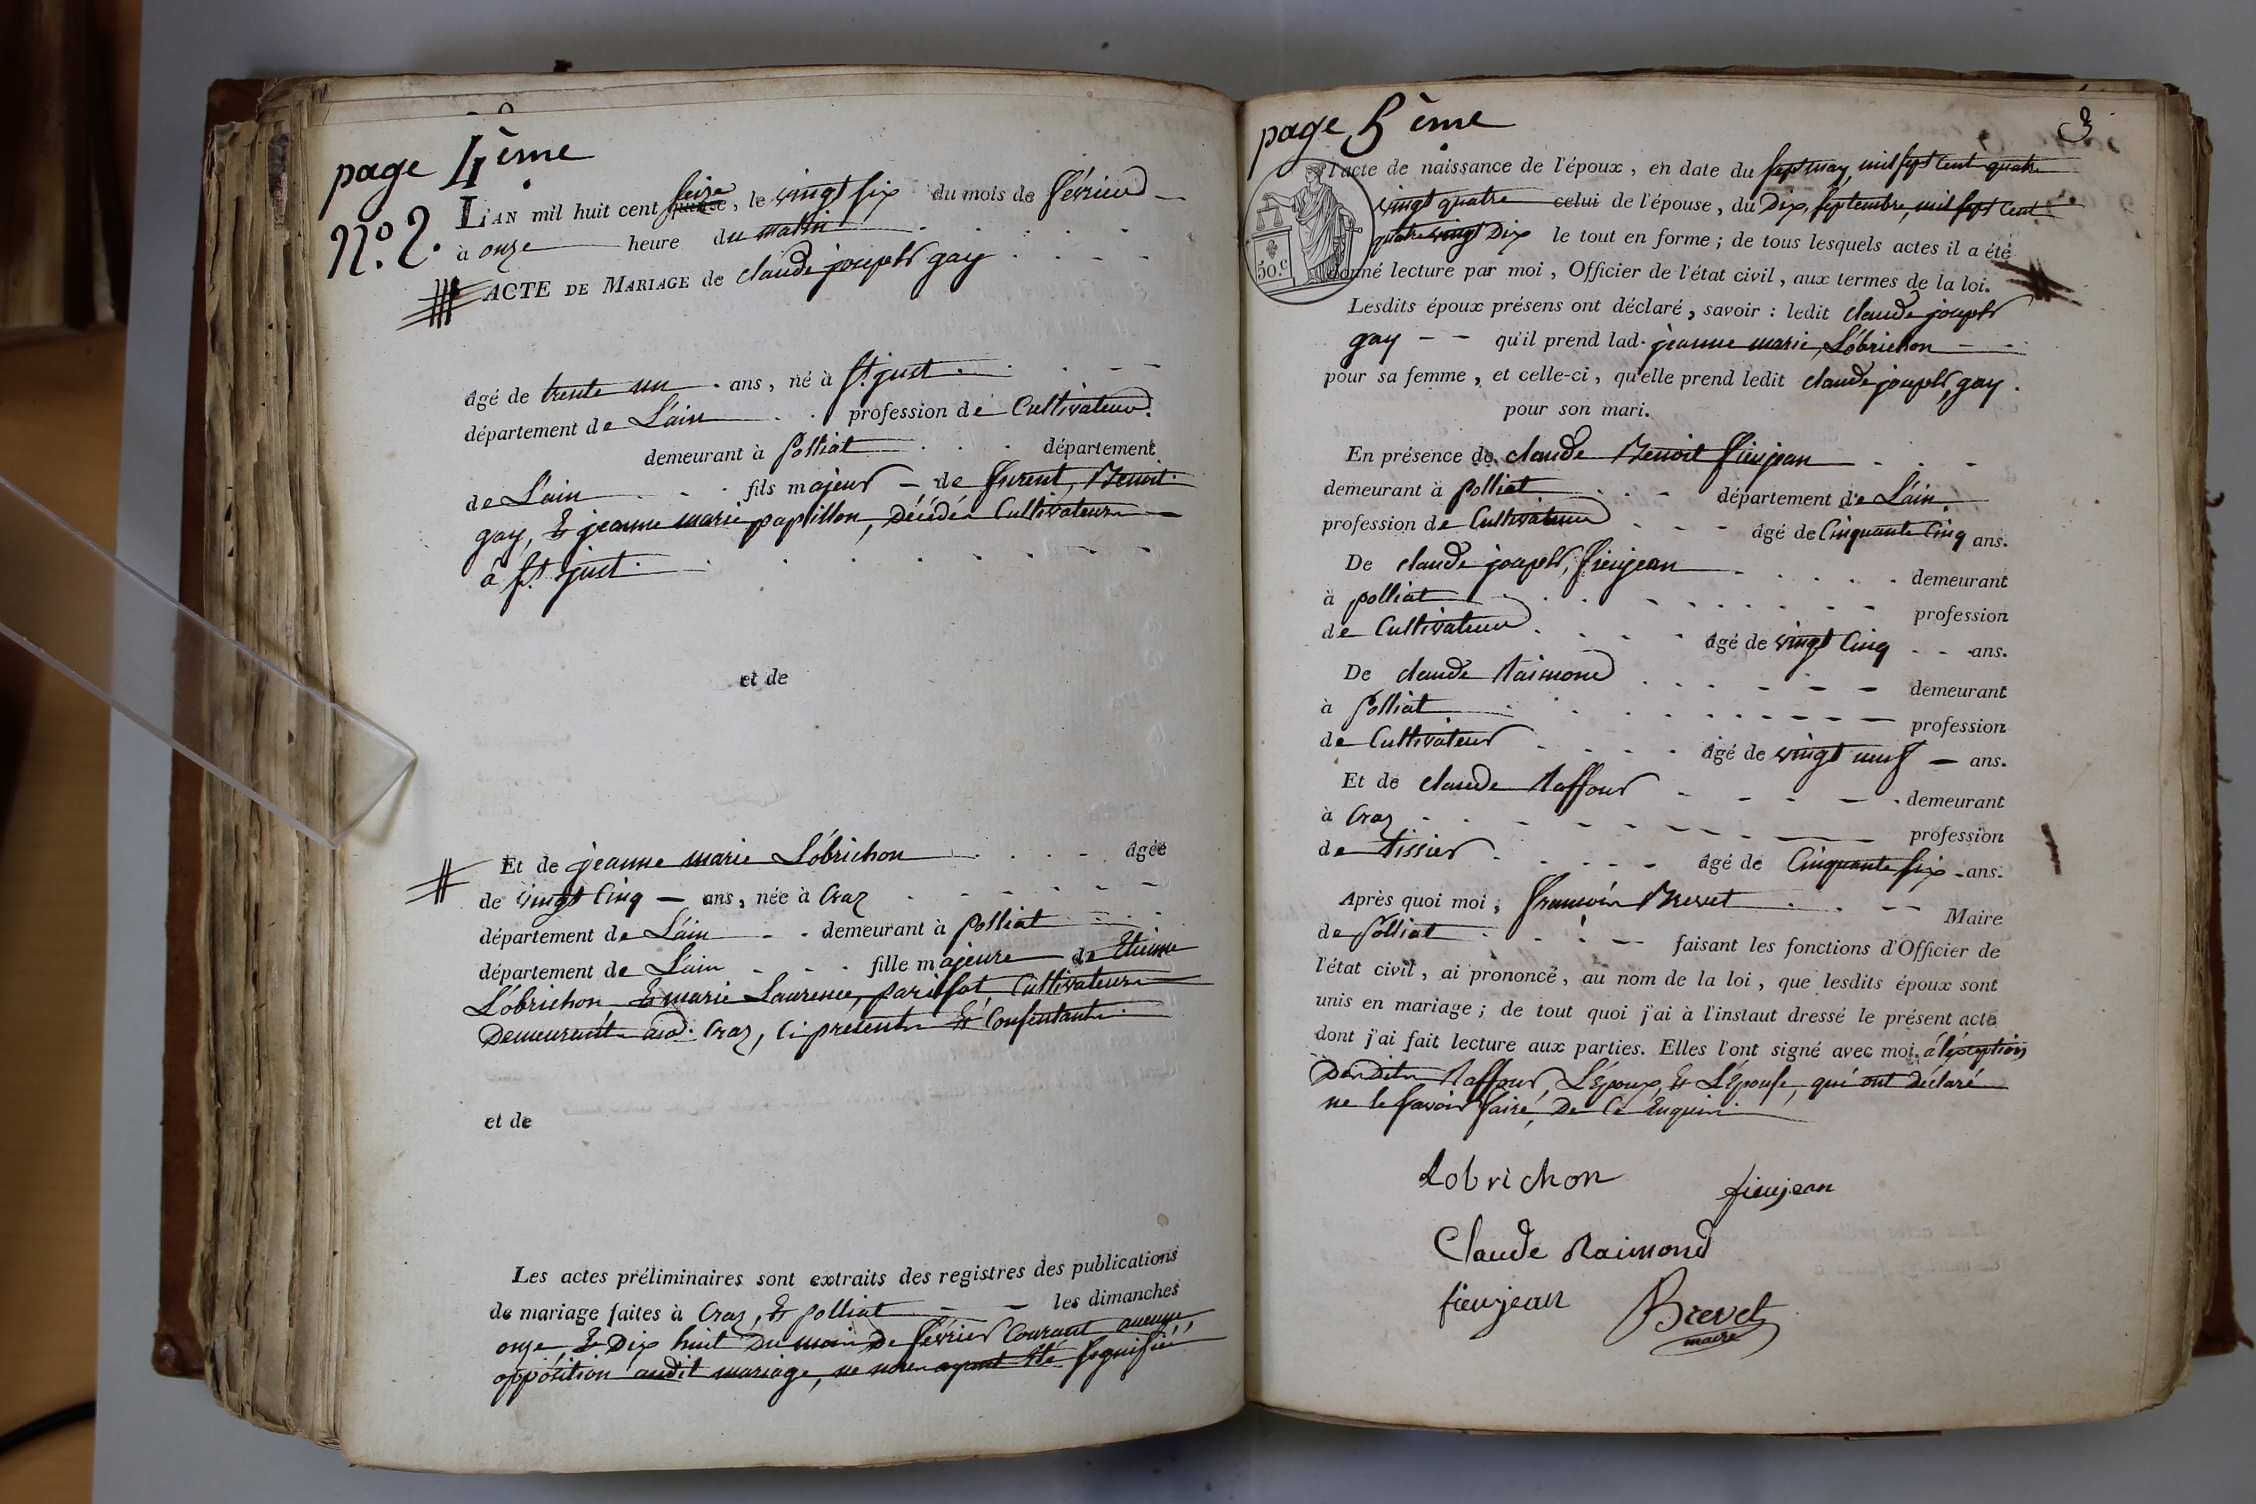 page 4ème
N.º 2. L'AN mil huit cent seize quinze, le vingt six du mois de février
à onze heure du matin
ACTE DE MARIAGE de claude joseph gay
âgé de trente un ans, né à St. just
département de L'ain profession de Cultivateur.
demeurant à Polliat département
de L'ain fils majeur de Benoit
gay, et jeanne marie papillon, Décédés Cultivateurs
à St. just.
et de
Et de jeanne marie Lobrichon âgée
de vingt Cinq ans, née à Craz
département de L'ain demeurant à Polliat
département de L'ain fille majeure de Etienne
Lobrichon, et marie Laurence, Cultivateurs
Demeurants aud. Craz, Ci présents et Consentants.
et de
Les actes préliminaires sont extraits des registres des publications
de mariage faites à Craz, et Polliat les dimanches
onze, et Dix huit Du mois De février Courant aucune,
opposition audit mariage, ne nous ayant été signifiée
page 5ème
3
l'acte de naissance de l'époux, en date du sept may, mil sept Cent quatre
vingt quatre celui de l'épouse, du Dix, septembre, mil sept Cent
quatre vingt Dix le tout en forme; de tous lesquels actes il a été
50.c donné lecture par moi, Officier de l'état civil, aux termes de la loi.
Lesdits époux présens ont déclaré, savoir : ledit claude joseph
gay qu'il prend lad. jeanne marie, Lobrichon
pour sa femme, et celle-ci, qu'elle prend ledit claude joseph, gay.
pour son mari.
En présence de claude Benoit fieujean
demeurant à Polliat département de L'ain
profession de Cultivateur âgé de Cinquante Cinq ans.
De claude joseph, fieujean demeurant
à polliat profession
de Cultivateur âgé de vingt Cinq ans.
De claude Raimond demeurant
à Polliat profession
de Cultivateur âgé de vingt neuf ans.
Et de claude Raffour demeurant
à Craz profession
de tissier âgé de Cinquante six ans.
Après quoi moi, françois Brevet Maire
de Polliat faisant les fonctions d'Officier de
l'état civil, ai prononcé, au nom de la loi, que lesdits époux sont
unis en mariage; de tout quoi j'ai à l'instaut dressé le présent acte
dont j'ai fait lecture aux parties. Elles l'ont signé avec moi, à l'exception
Raffour, L'Epoux, et L'Epouse, qui ont déclaré
ne le savoir faire, De Ce Enquis.
Lobrichon
fieujean
Claude Raimond
fieujean
Brevet
maire